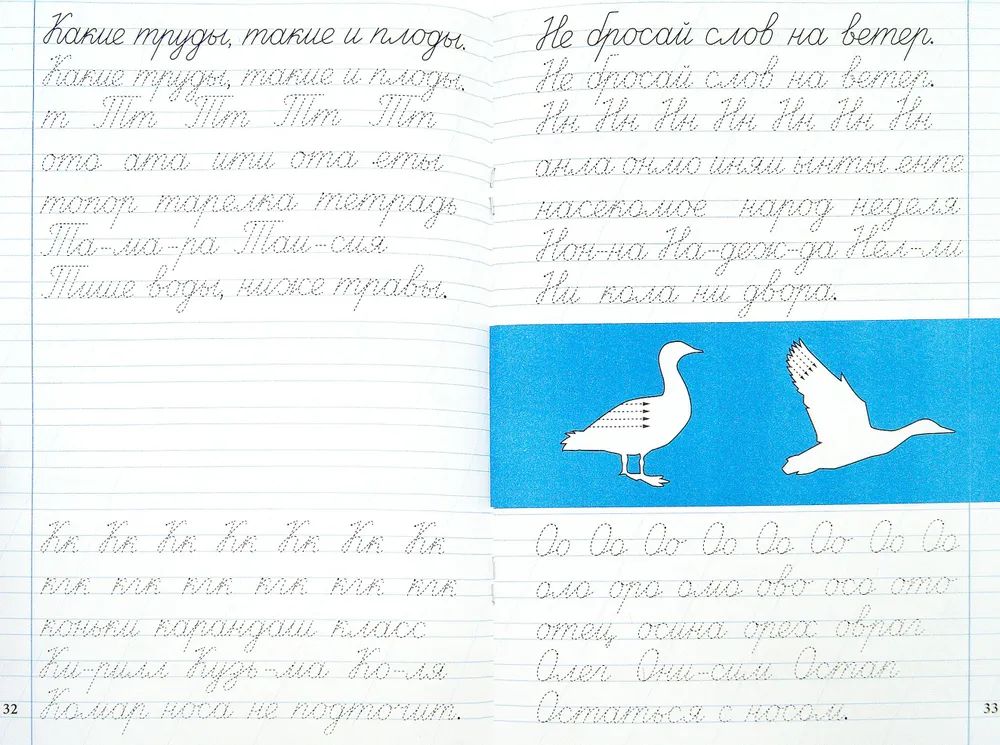 Какие труды, такие и плоды.
Какие труды, такие и плоды.
т Тт Тт Тт Тт
ото ата ити ота еты
топор тарелка тетрадь
Та-ма-ра Таи-сия
Тише воды, ниже травы.
Кк Кк Кк Кк Кк Кк Кк
кгк кгк кгк кгк кгк кгк
коньки карандаш класс
Ки-рилл Кузь-ма Ко-ля
Комар носа не подточит.
32
Не бросай слов на ветер.
Не бросай слов на ветер.
Нн Нн Нн Нн Нн Нн Нн
анла онмо иняи ынты енпе
насекомое народ неделя
Нон-на На-деж-да Нел-ли
Ни кола ни двора.
Оо Оо Оо Оо Оо Оо Оо Оо
оло ора ома ово осо ото
отец осина орех овраг
Олег Они-сим Остап
Остаться с носом.
33